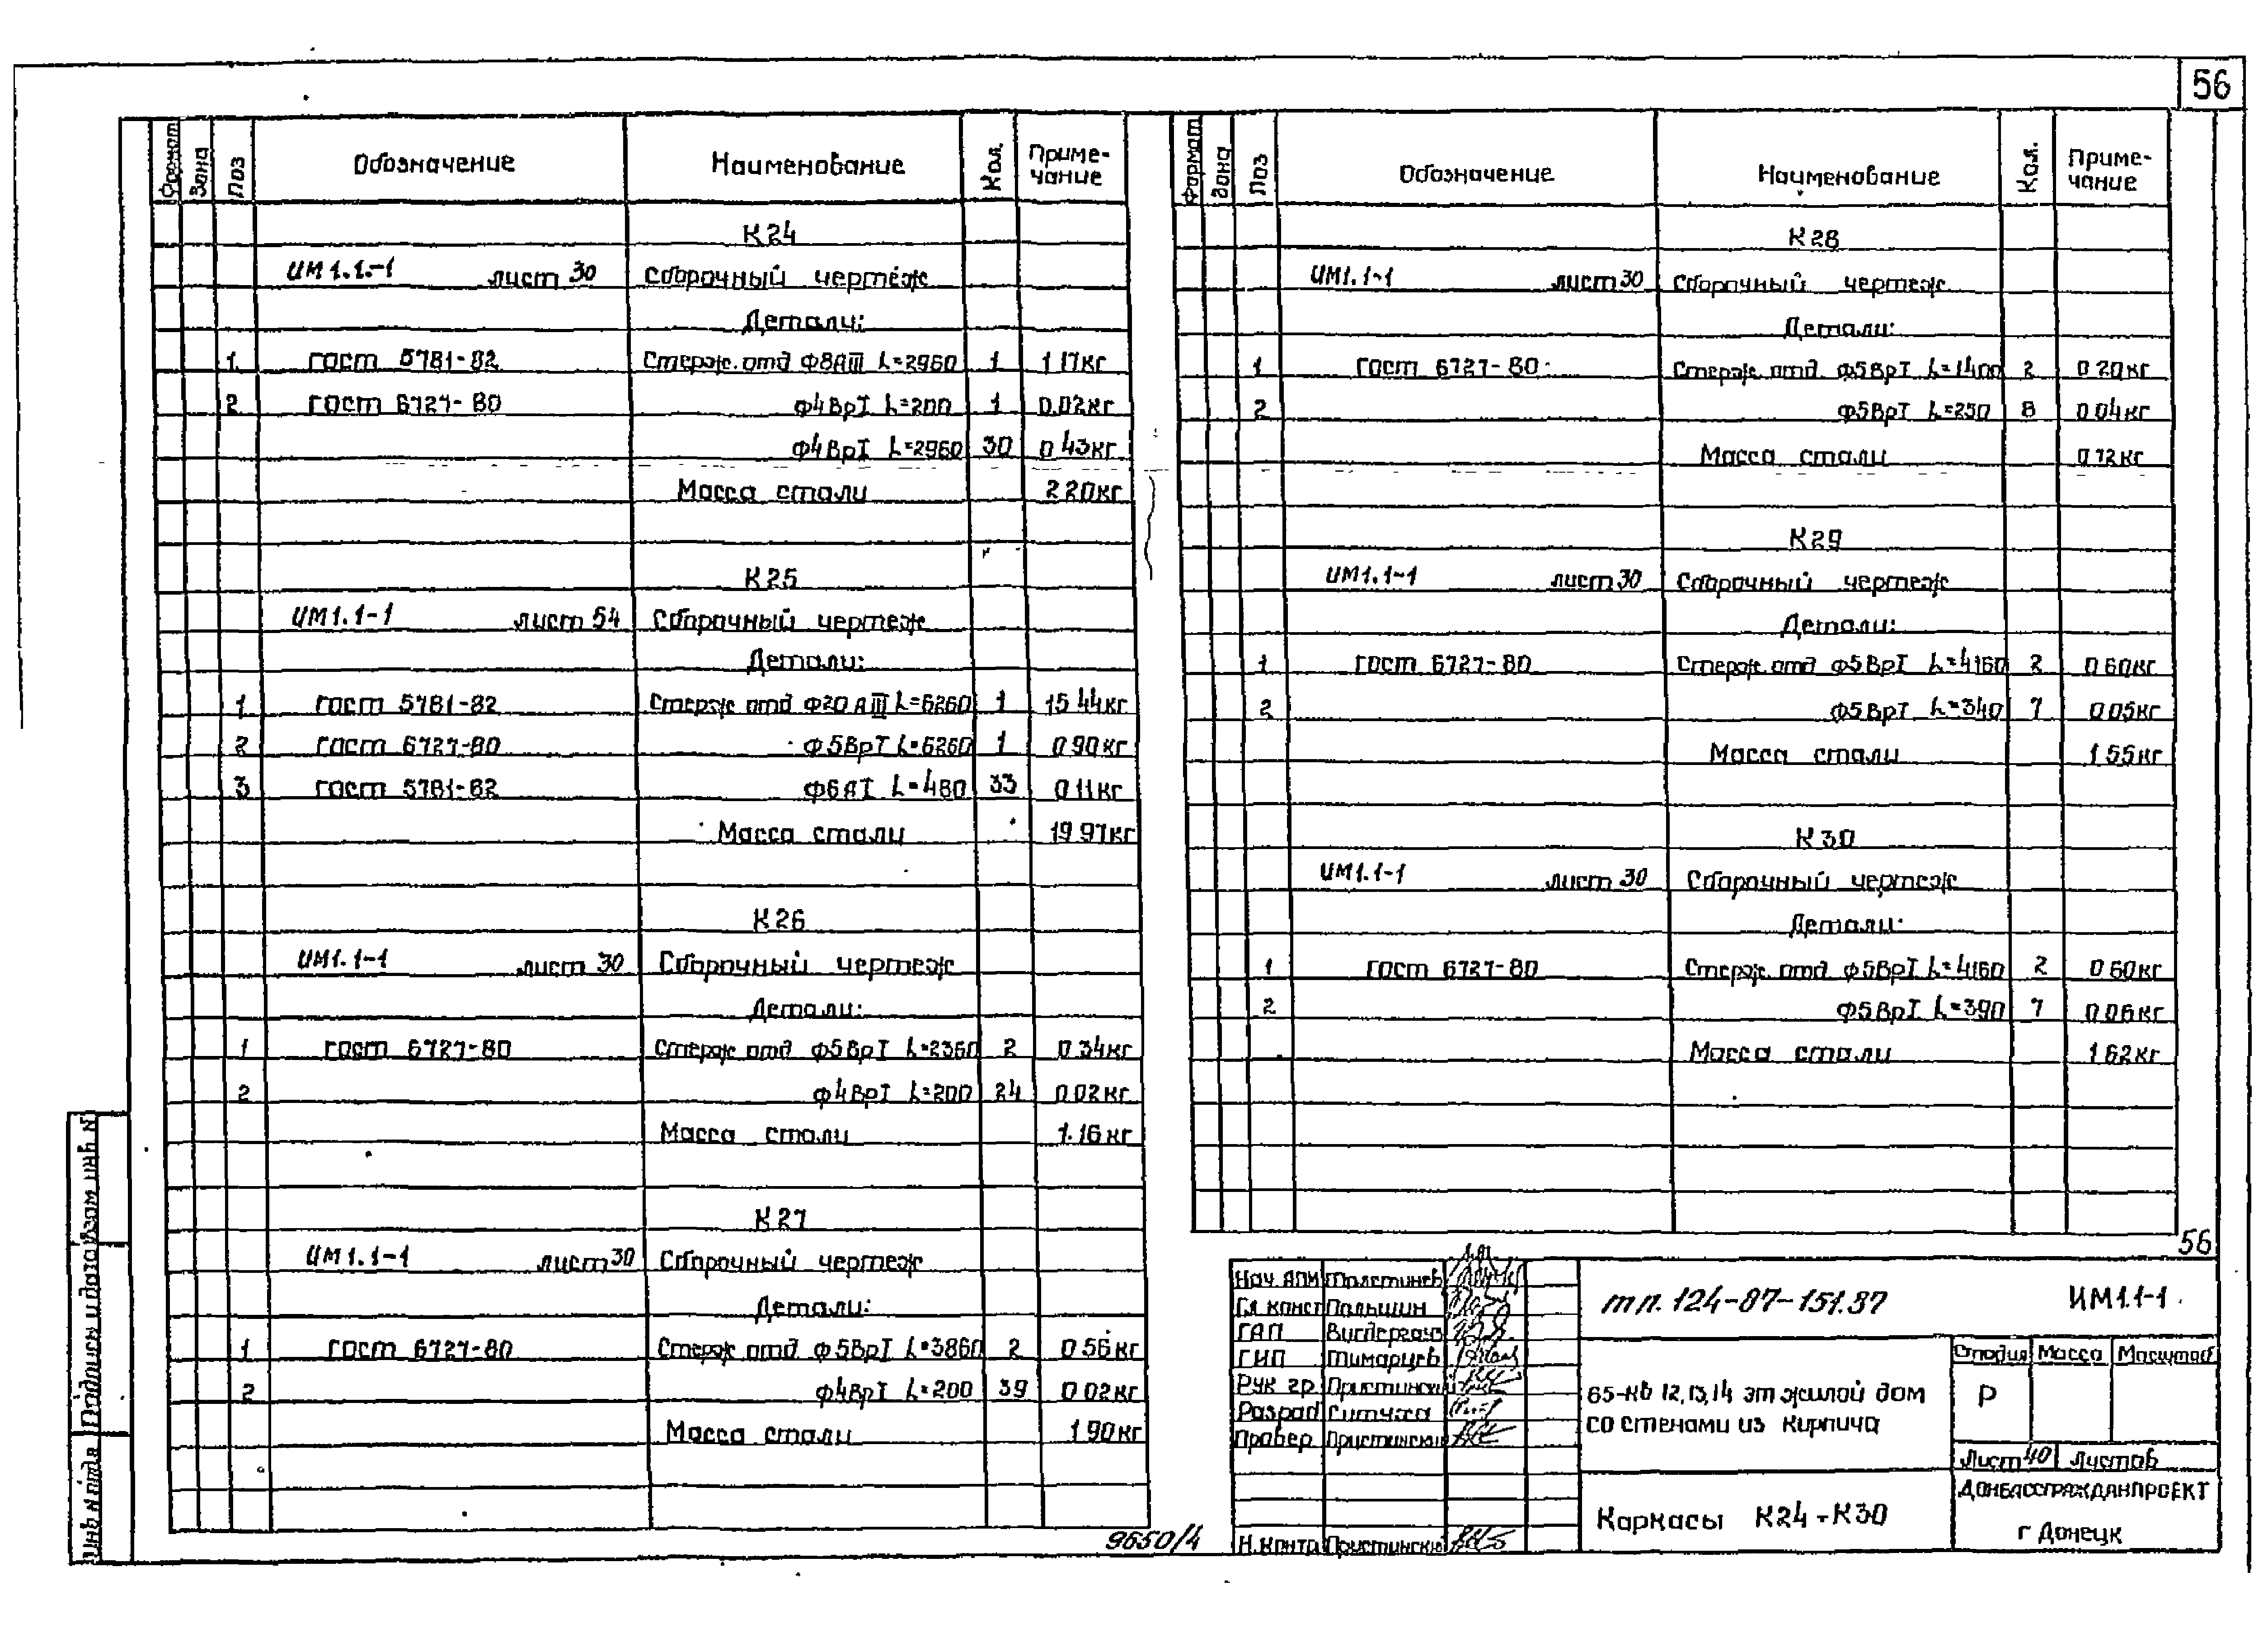 56
Формат Зона Поз Обозначение Наименование Кол. Приме-чание
К24
ИМ1.1-1 лист 30 Сборочный чертеж
Детали:
1 ГОСТ 5781-82 Стерж. отд Ф8АIII L=2960 1 1 17кг
2 ГОСТ 6727-80 Ф4ВрI L=200 1 0.02кг
Ф4ВрI L=2960 30 0 43кг
Масса стали 2 20кг
К25
ИМ1.1-1 лист 54 Сборочный чертеж
Детали:
1 ГОСТ 5781-82 Стерж отд Ф20АIII L=6260 1 15 44кг
2 ГОСТ 6727-80 Ф5ВрI L=6260 1 0 90кг
3 ГОСТ 5781-82 Ф6АI L=480 33 0 11кг
Масса стали 19 97кг
К26
ИМ1.1-1 лист 30 Сборочный чертеж
Детали:
1 ГОСТ 6727-80 Стерж отд Ф5ВрI L=2360 2 0 34кг
2 Ф4ВрI L=200 24 0 02кг
Масса стали 1.16кг
К27
ИМ1.1-1 лист 30 Сборочный чертеж
Детали:
1 ГОСТ 6727-80 Стерж отд Ф5ВрI L=3860 2 0 56кг
2 Ф4ВрI L=200 39 0 02кг
Масса стали 1 90кг
Формат Зона Поз Обозначение Наименование Кол. Приме-чание
К28
ИМ1.1-1 лист 30 Сборочный чертеж
Детали:
1 ГОСТ 6727-80 Стерж отд. Ф5ВрI L=1400 2 0 20кг
2 Ф5ВрI L=250 8 0 04кг
Масса стали 0 72кг
К29
ИМ1.1-1 лист 30 Сборочный чертеж
Детали:
1 ГОСТ 6727-80 Стерж. отд Ф5ВрI L=4160 2 0 60кг
2 Ф5ВрI L=340 7 0 05кг
Масса стали 1 55кг
К30
ИМ1.1-1 лист 30 Сборочный чертеж
Детали:
1 ГОСТ 6727-80 Стерж. отд Ф5ВрI L=4160 2 0 60кг
2 Ф5ВрI L=390 7 0 06кг
Масса стали 1 62кг
56
Нач. АПМ
Гл конст Паньшин
ГАП
ГИП Тимарцев
Рук гр. Пристинский
Разраб
Провер Пристинский
Н.контр Пристинский
т п. 124-87-151.87 ИМ1.1-1
65-кв 12,13,14 эт жилой дом
со стенами из кирпича
Стадия Масса Масштаб
Р
Лист 40 Листов
Каркасы К24-К30
ДОНБАССГРАЖДАНПРОЕКТ
г Донецк
9650/4
Инв N подл Подпись и дата Взам инв N